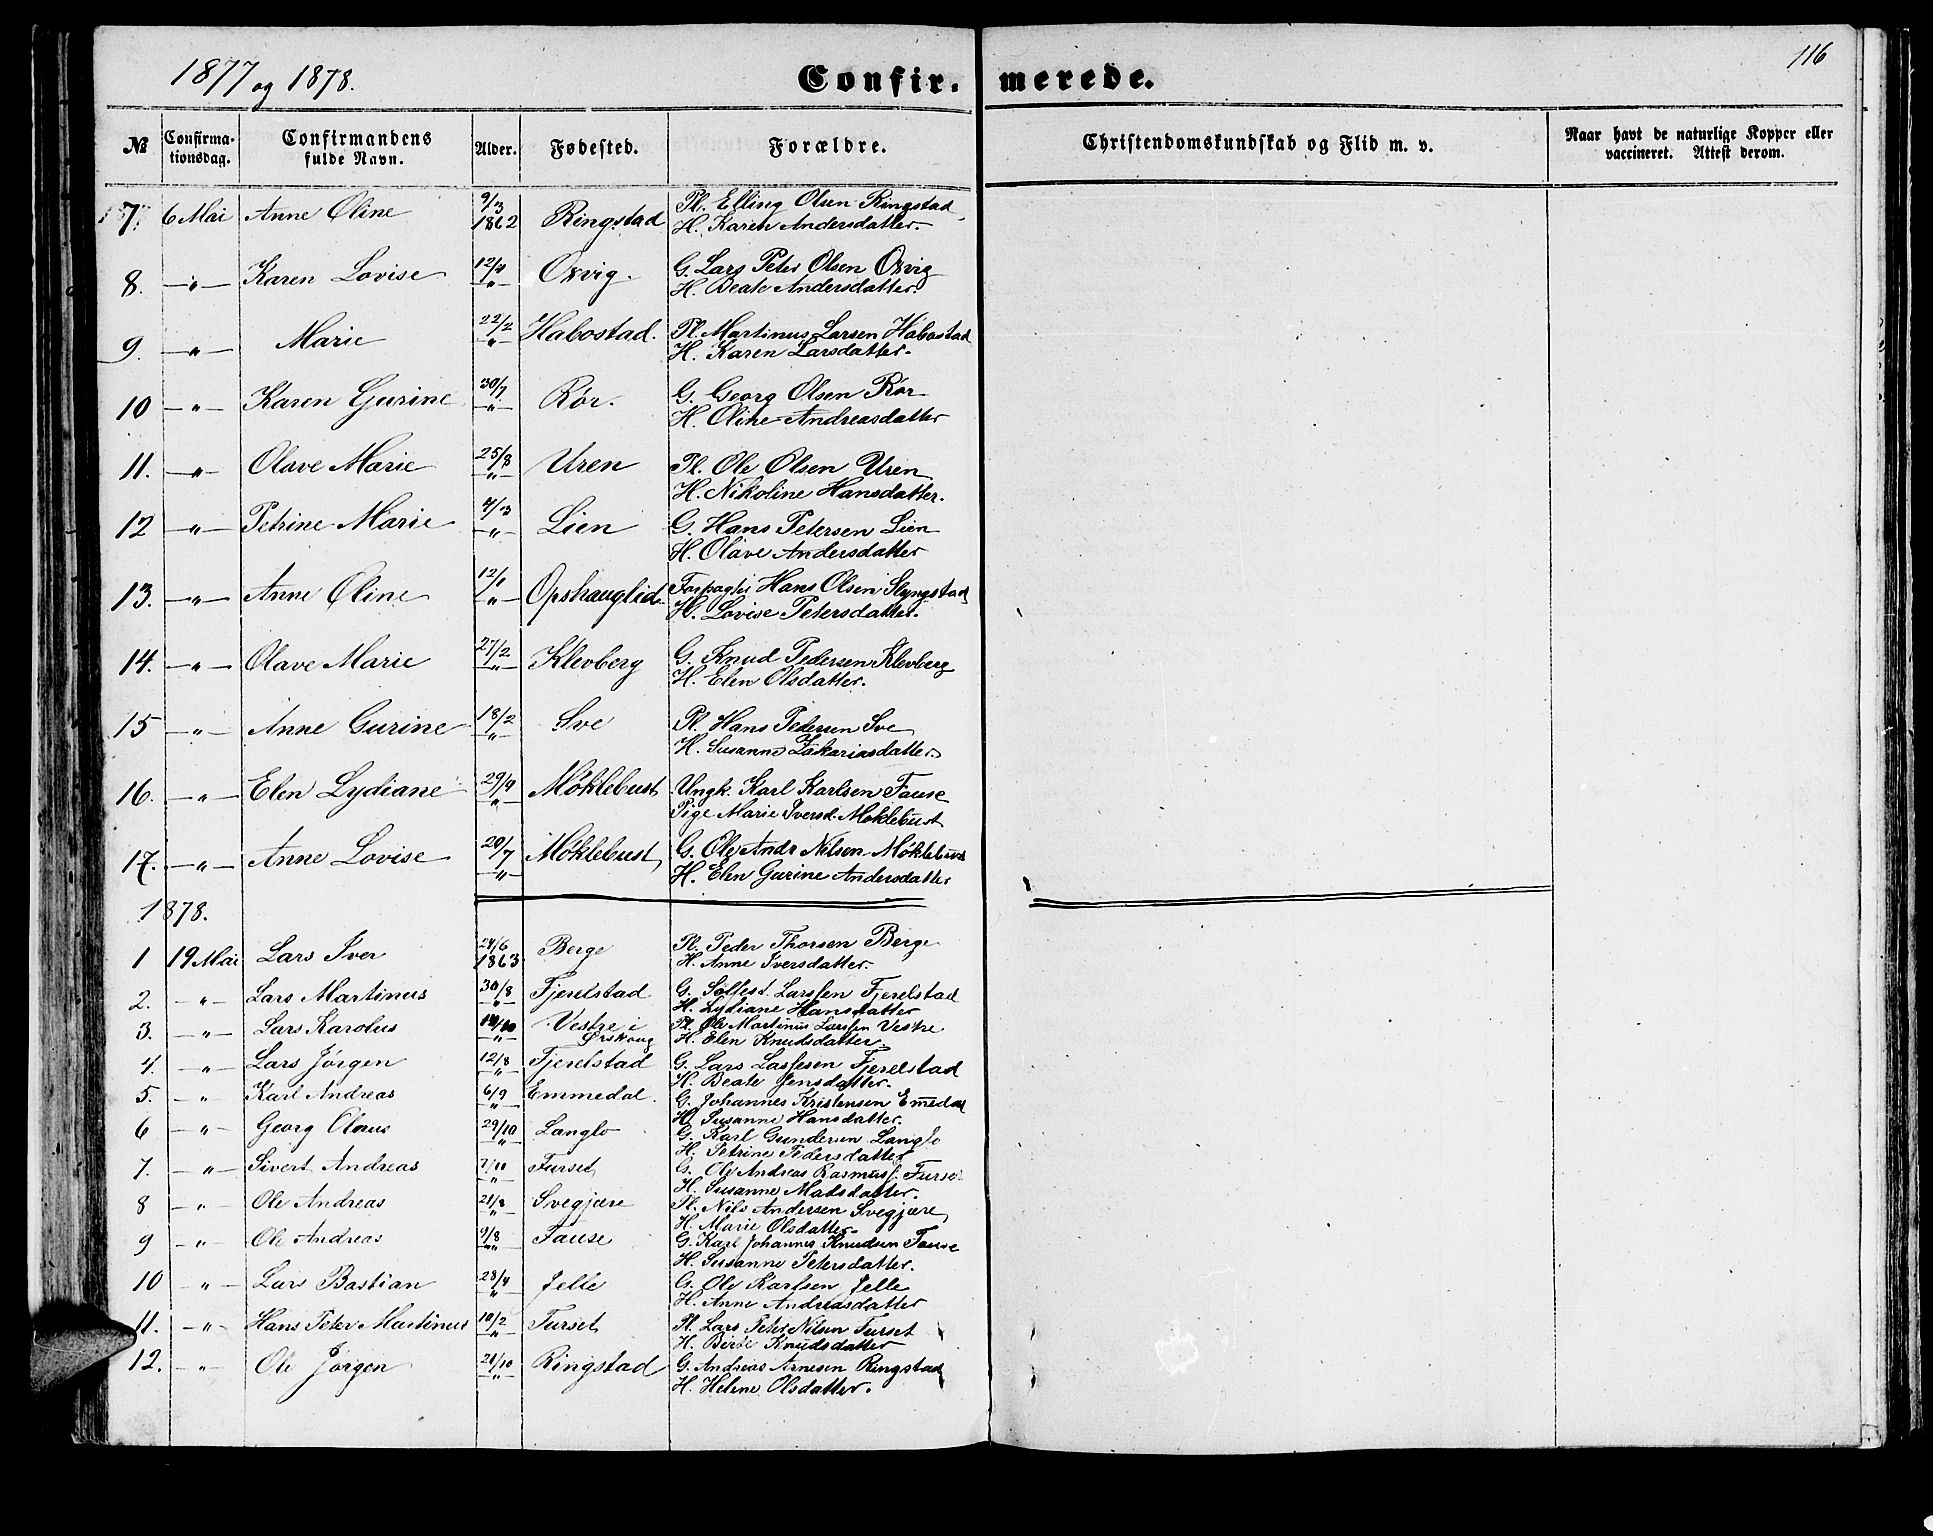 116
1877 og 1878. Confir. merede.
№ Confirma-tionsdag. Confirmandens fulde Navn. Alder. Fødested. Forældre. Christendomskundskab og Flid m. v. Naar havt de naturlige Kopper eller vaccineret. Attest derom.
7. 6 Mai Anne Oline 9/3 1862 Ringstad Pl. Elling Olsen Ringstad
H. Karen Andersdatter.
8. -"- Karen Lovise 12/4 -"- Oxvig. G. Lars Peter Olsen Oxvig
H. Beate Andersdatter.
9. -"- Marie 22/2 -"- Habostad. Pl. Martinus Larsen Habostad
H. Karen Larsdatter.
10 -"- Karen Gurine 30/7 -"- Rør. G. Georg Olsen Rør
H. Oline Andreasdatter
11. -"- Olave Marie 25/8 -"- Uren Pl. Ole Olsen Uren
H. Nikoline Hansdatter.
12 -"- Petrine Marie 4/3 -"- Lien G. Hans Petersen Lien
H. Olave Andersdatter
13. -"- Anne Oline 12/1 -"- Opshauglid. Forpagter Hans Olsen Slyngstad
H. Lovise Petersdatter.
14. -"- Olave Marie 27/2 -"- Klevberg G. Knud Pedersen Klevberg
H. Elen Olsdatter.
15 -"- Anne Gurine 18/2 -"- Sve Pl. Hans Petersen Sve
H. Susanne Zakariasdatter
16. -"- Elen Lydiane 29/9 -"- Møklebust Ungk. Karl Karlsen Fause
Pige Marie Iversd. Møklebust
17. -"- Anne Lovise 20/7 -"- Møklebust G. Ole Andr Nilsen Møklebust
H. Elen Gurine Andersdatter
1878.
1 19 Mai Lars Iver 24/6 1863 Berge Pl. Peder Thorsen Berge
H. Anne Iversdatter.
2. -"- Lars Martinus 30/8 -"- Fjerelstad G. Solfest Larssen Fjerelstad
H. Lydiane Hansdatter
3. -"- Lars Karolus -"- Vestre i Ørskoug Pl. Ole Martinus Larssen Vestre
H. Elen Knudsdatter.
4. -"- Lars Jørgen 12/8 -"- Fjerelstad G. Lars Lassesen Fjerelstad
H. Beate Jensdatter.
5. -"- Karl Andreas 6/9 -"- Emmedal. G. Johannes Kristensen Emedal
H. Susanne Hansdatter.
6 -"- Georg Olaus 29/10 -"- Langlo G. Karl Gundersen Langlo
H. Petrine Pedersdatter
7. -"- Sivert Andreas 7/10 -"- Furset G. Ole Andreas Rasmuss. Furset
H. Susanne Madsdatter.
8 -"- Ole Andreas 21/8 -"- Svegjære Pl. Nils Andersen Svegjære
H. Marie Olsdatter
9 -"- Ole Andreas 9/8 -"- Fause G. Karl Johannes Knudsen Fause
H. Susanne Petersdatter.
10 -"- Lars Bastian 28/4 -"- Jelle G. Ole Karlsen Jelle
H. Anne Andreasdatter
11. -"- Hans Peter Martinus 10/2 -"- Furset Pl. Lars Peter Nilsen Furset
H. Birte Knudsdatter
12. -"- Ole Jørgen 21/10 -"- Ringstad G. Andreas Arnesen Ringstad
H. Helene Olsdatter.